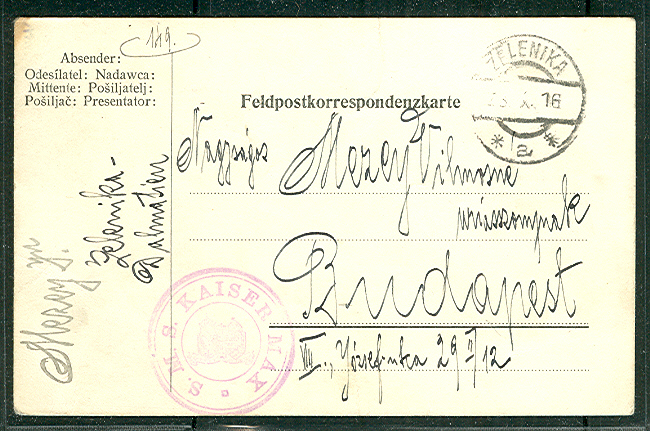 149.
Absender:
Odesílatel: Nadawca:
Mittente: Pošiljatelj:
Pošiljač: Presentator:
Feldpostkorrespondenzkarte
ZELENIKA
X. 16
* a *
Nagyságos
Mezey Vilmosne
uriasszonynak
Budapest
VIII., Józsefutca 29 II/12
Mezey
Zelenika-
Dalmatien
S. M. S. KAISER MAX